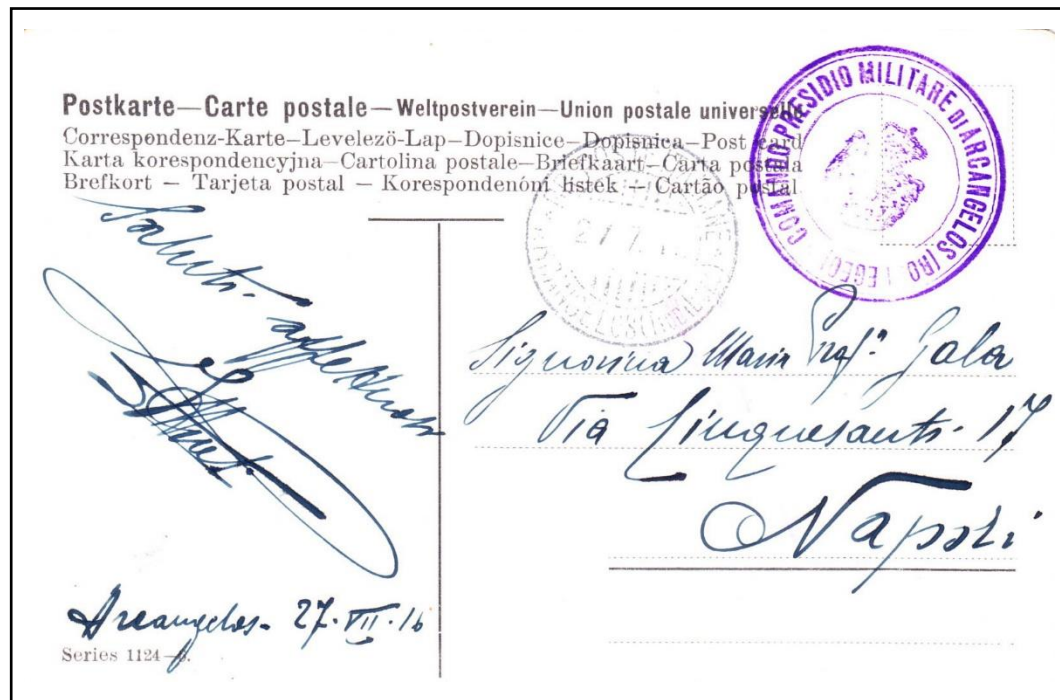 Postkarte—Carte postale—Weltpostverein—Union postale universelle
Correspondenz-Karte—Levelező-Lap—Dopisnice—Dopisnica—Post card
Karta korespondencyjna—Cartolina postale—Briefkaart—Carta postala
Brefkort — Tarjeta postal — Korespondenóni listék — Cartão postal
COMANDO PRESIDIO MILITARE DI ARCANGELOS (RO EGEO)
27 7
Saluti affettuosi
Signorina Maria Gala
Via Cinquesanti 17
Napoli
Arcangelos - 27·VII·16
Series 1124